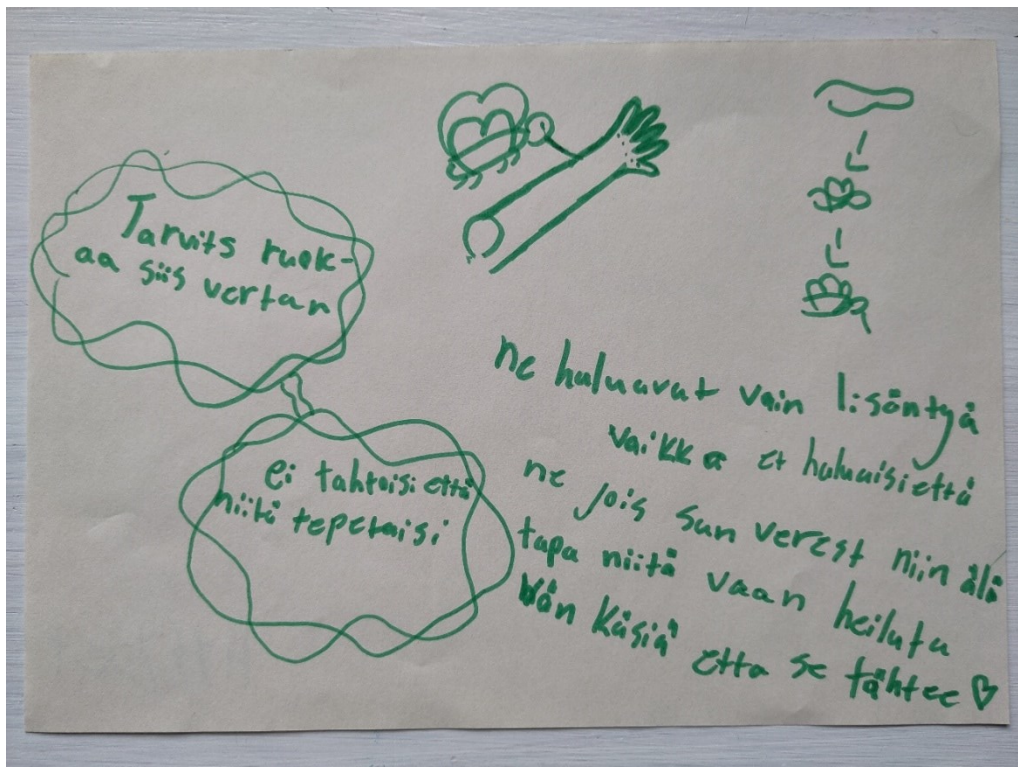 Tarvits ruok-
aa siis vertan
ei tahtoisi että
niitä tepetaisi
ne haluavat vain lisäntyä
vaikka et haluaisi että
ne jois sun verest niin älä
tapa niitä vaan heiluta
vän käsiä että se tähtee